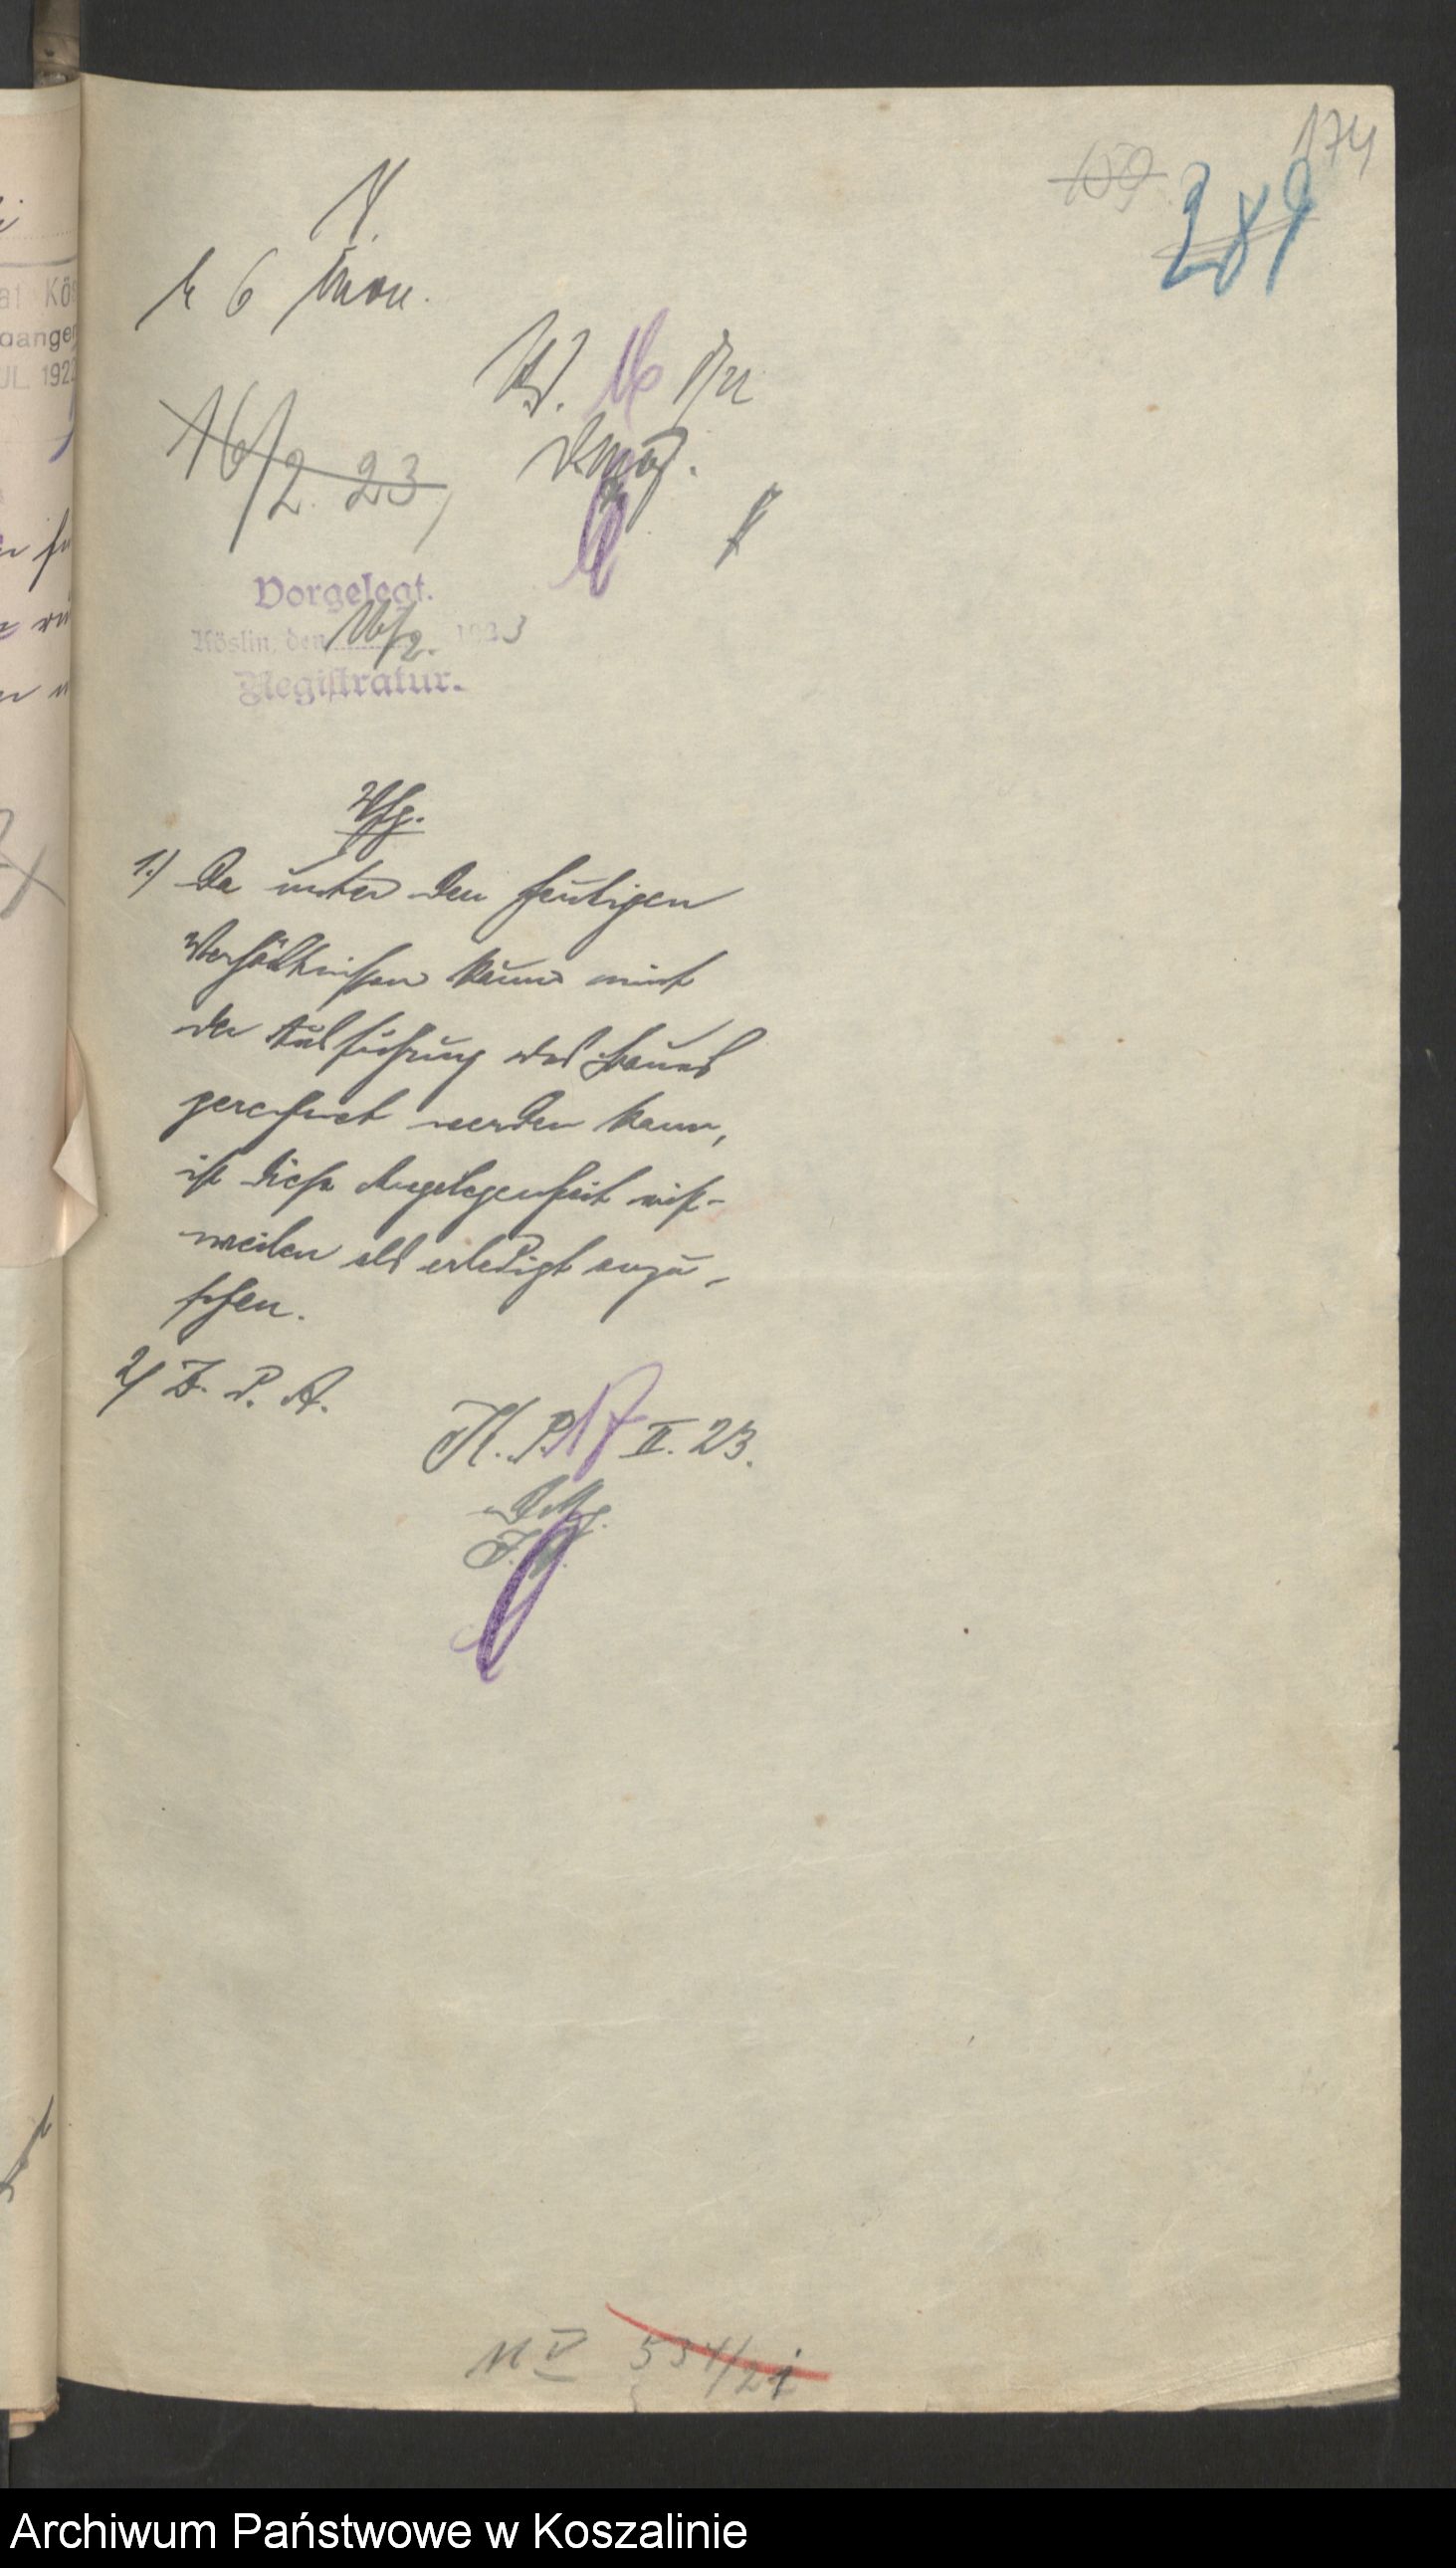 174
159
289
V.
n. 6 Mon.
K. 16 8/22
16/2. 23,
Vorgelegt.
Köslin, den 16/2. 1923
Registratur.
Vfg.
1.) Da unter den heutigen
Verhältnissen kaum mit
der Ausführung des Baues
gerechnet werden kann,
ist diese Angelegenheit
weilen als erledigt anzu-
sehen.
2/ Z. d. A.
K. d. 17 II. 23.
M V 534/21
Archiwum Państwowe w Koszalinie